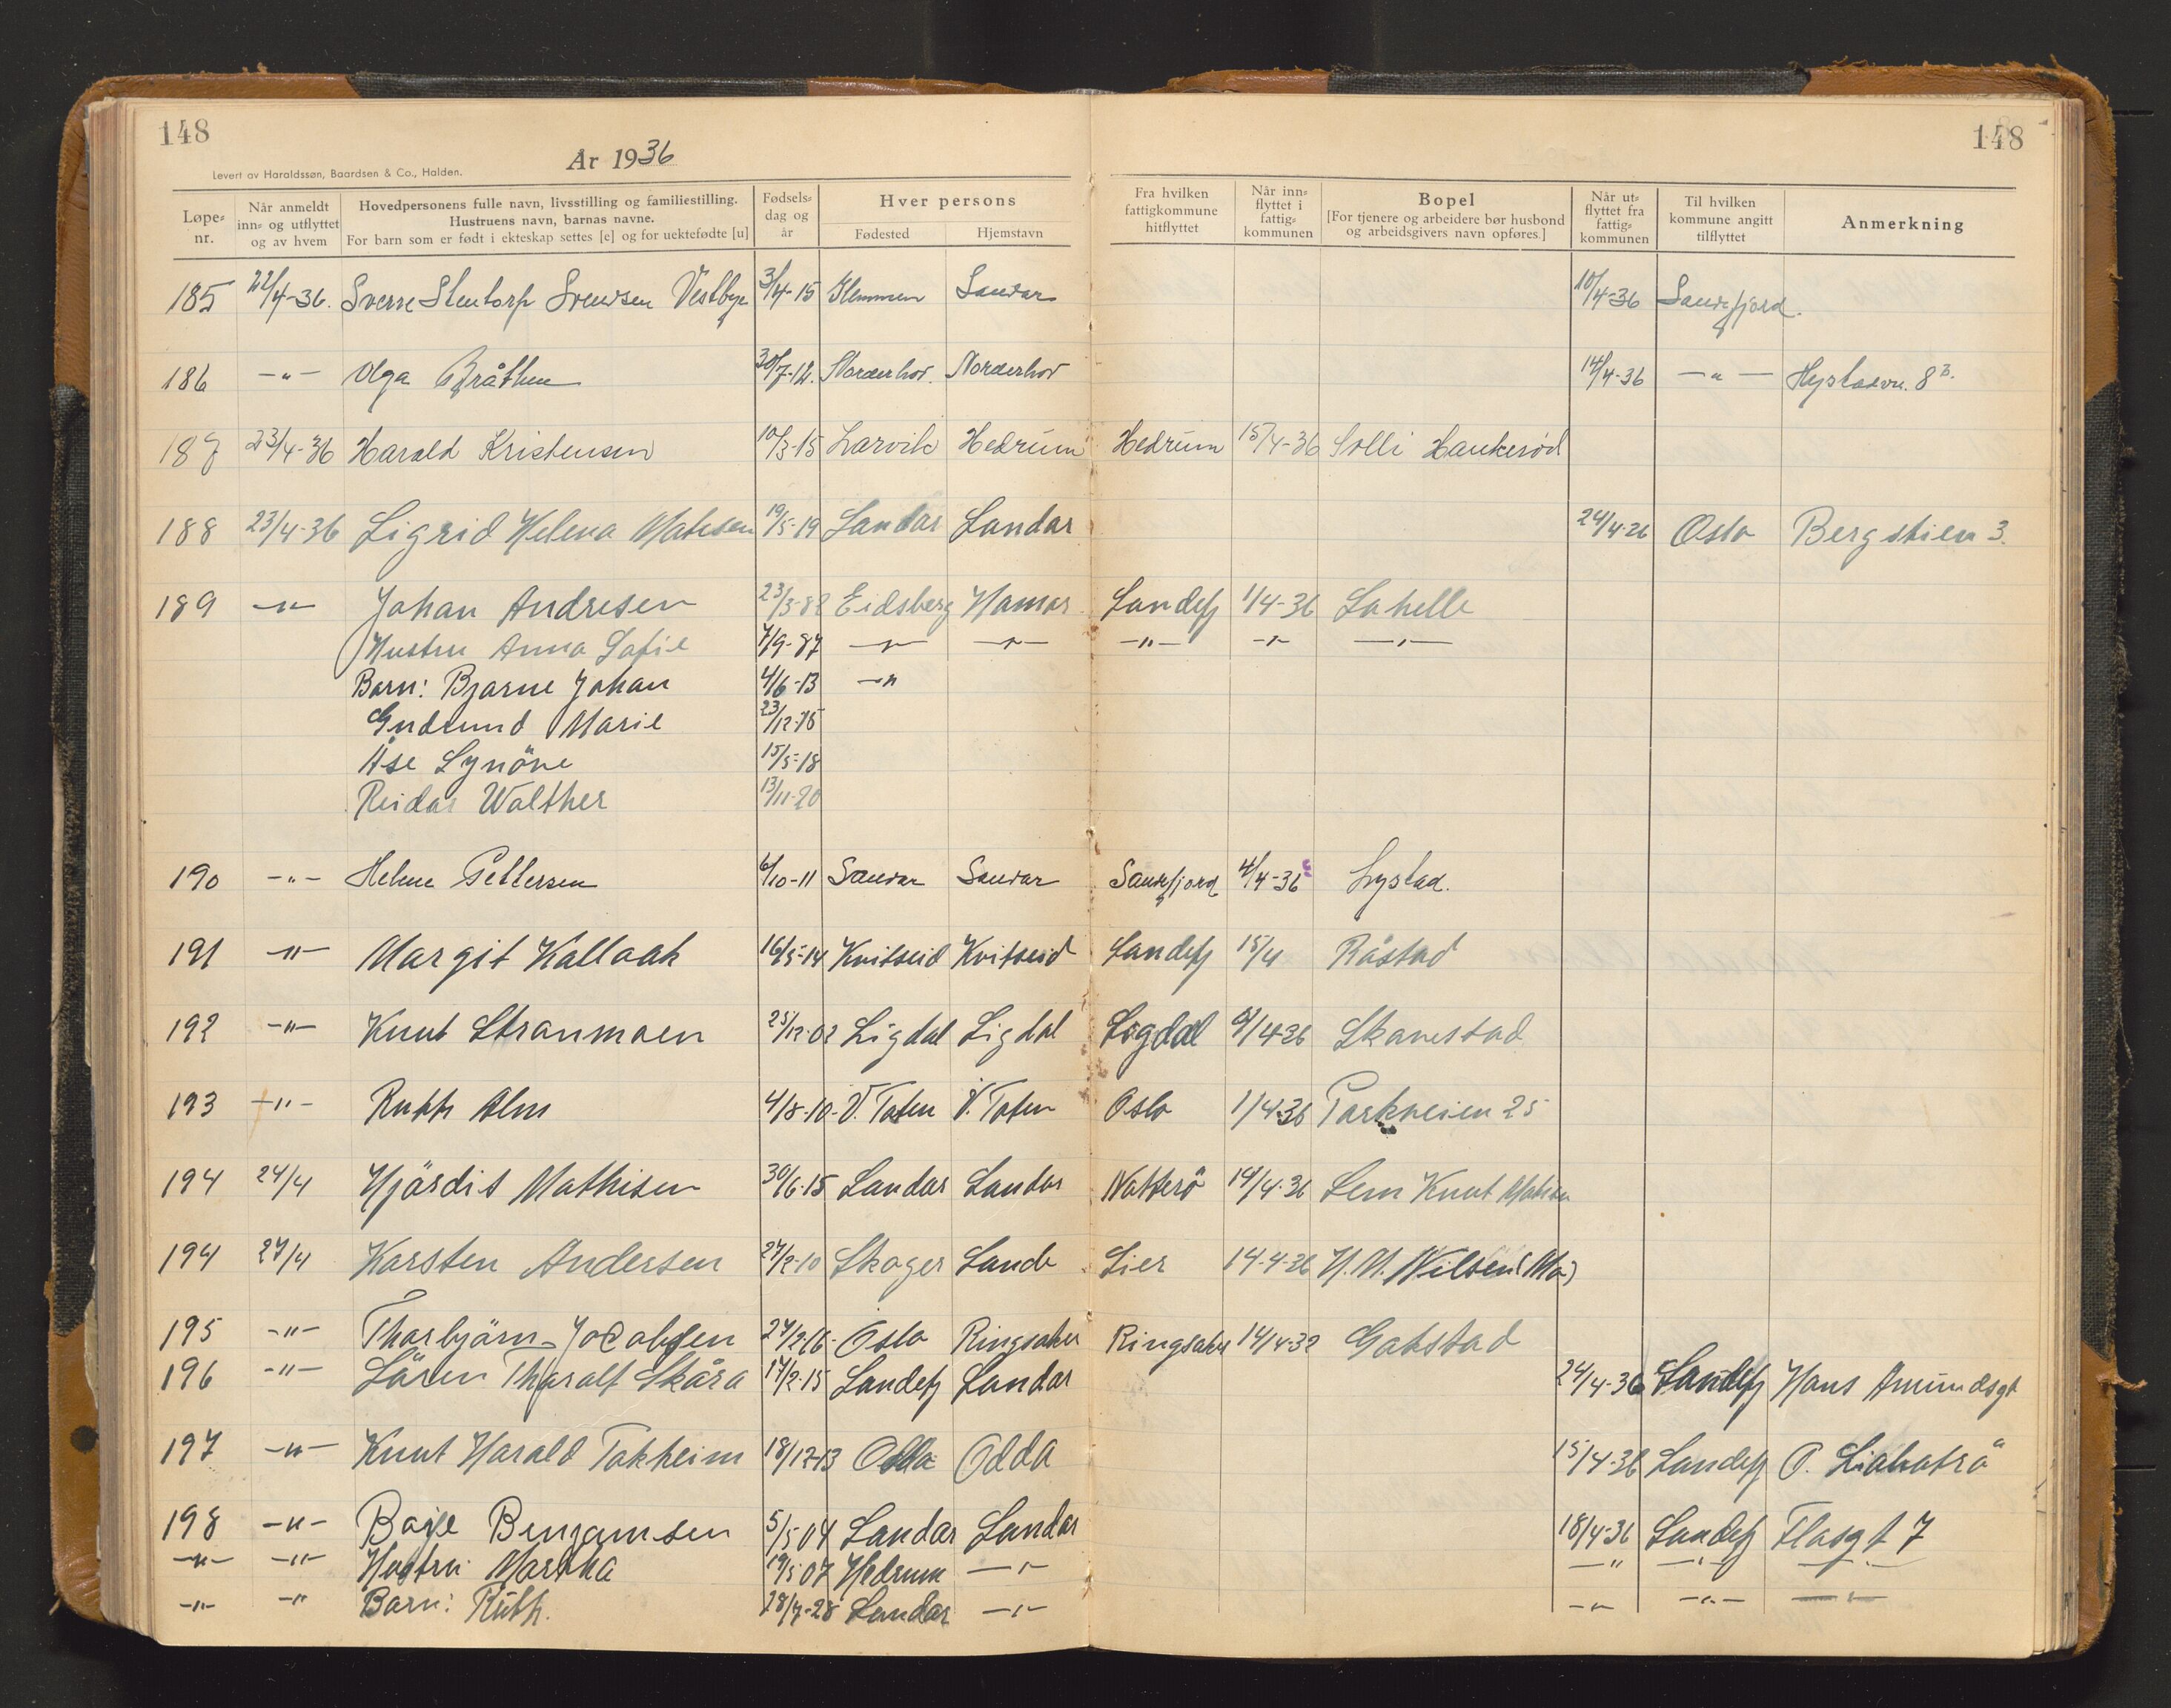 148
148
År 1936
Levert av Haraldssøn, Baardsen & Co., Halden.
Løpe-nr. | Når anmeldt inn- og utflyttet og av hvem | Hovedpersonens fulle navn, livsstilling og familiestilling. Hustruens navn, barnas navne. For barn som er født i ekteskap settes [e] og for uektefødte [u] | Fødsels-dag og år | Hver persons Fødested | Hjemstavn | Fra hvilken fattigkommune hitflyttet | Når inn-flyttet i fattig-kommunen | Bopel [For tjenere og arbeidere bør husbond og arbeidsgivers navn opføres.] | Når ut-flyttet fra fattig-kommunen | Til hvilken kommune angitt tilflyttet | Anmerkning
185 22/4-36. Sverre Stentorp Svendsen Vestbye 3/4-15 Glemmen Sandar 10/4-36 Sandefjord.
186 -"- Olga Bråthen 30/7-12. Norderhov. Norderhov 14/4-36 -"- 8 B.
187 23/4-36 Harald Kristensen 10/3-15 Larvik Hedrum Hedrum 15/4-36 Solli Haukerød
188 23/4-36 Sigrid Helena Mathisen 19/5-19 Sandar Sandar 24/4-26 Oslo Bergstien 3.
189 -"- Johan Andresen 23/3-82 Eidsberg Hamar Sandefj 1/4-36 Lahelle
Hustru Anna Sofie 7/9-87 -"- -"- -"- -"- -"-
Barn: Bjarne Johan 4/6-13 -"
Gudrund Marie 23/12-15
Åse Synöve 15/5-18
Reidar Walther 13/11-20
190 -"- Helene Pettersen 6/10-11 Sandar Sandar Sandefjord 4/4-36 Lystad.
191 -"- Margit Kallaak 16/5-14 Kvitseid Kvitseid Sandefj 15/4 Råstad
192 -"- Knut Stranmoen 25/12-02 Sigdal Sigdal Sigdal 4/4-36 Skavestad
193 -"- Ruth Alm 4/8-10- V. Toten V. Toten Oslo 1/4-36 Parkveien 25
194 24/4 Hjördis Mathisen 30/6-15 Sandar Sandar Nötterö 14/4-36 Lem Knut
194 27/4 Karsten Andersen 27/2-10 Skoger Sande Lier 14-4-26 H. M. Nilsen (Mo)
195 -"- Thorbjörn Jocobsen 27/2-16- Oslo Ringsaker Ringsaker 14/4-32 Gokstad
196 -"- Sören Thoralf Skåra 17/2-15 Sandefj Sandar 24/4-36 Sandefj Hans Amundsgt
197 -"- Knut Harald Tokheim 18/12-13 Odda Odda 15/4-36 Sandefj O.
198 -"- Boye Benjamsen 5/5 04 Sandar Sandar 18/4-36 Sandefj 7
-"- -"- Hustru Martha 19/5 07 Hedrum -"- -"- -"- -"-
-"- -"- Barn: Ruth. 28/7-28 Sandar -"- -"- -"- -"-